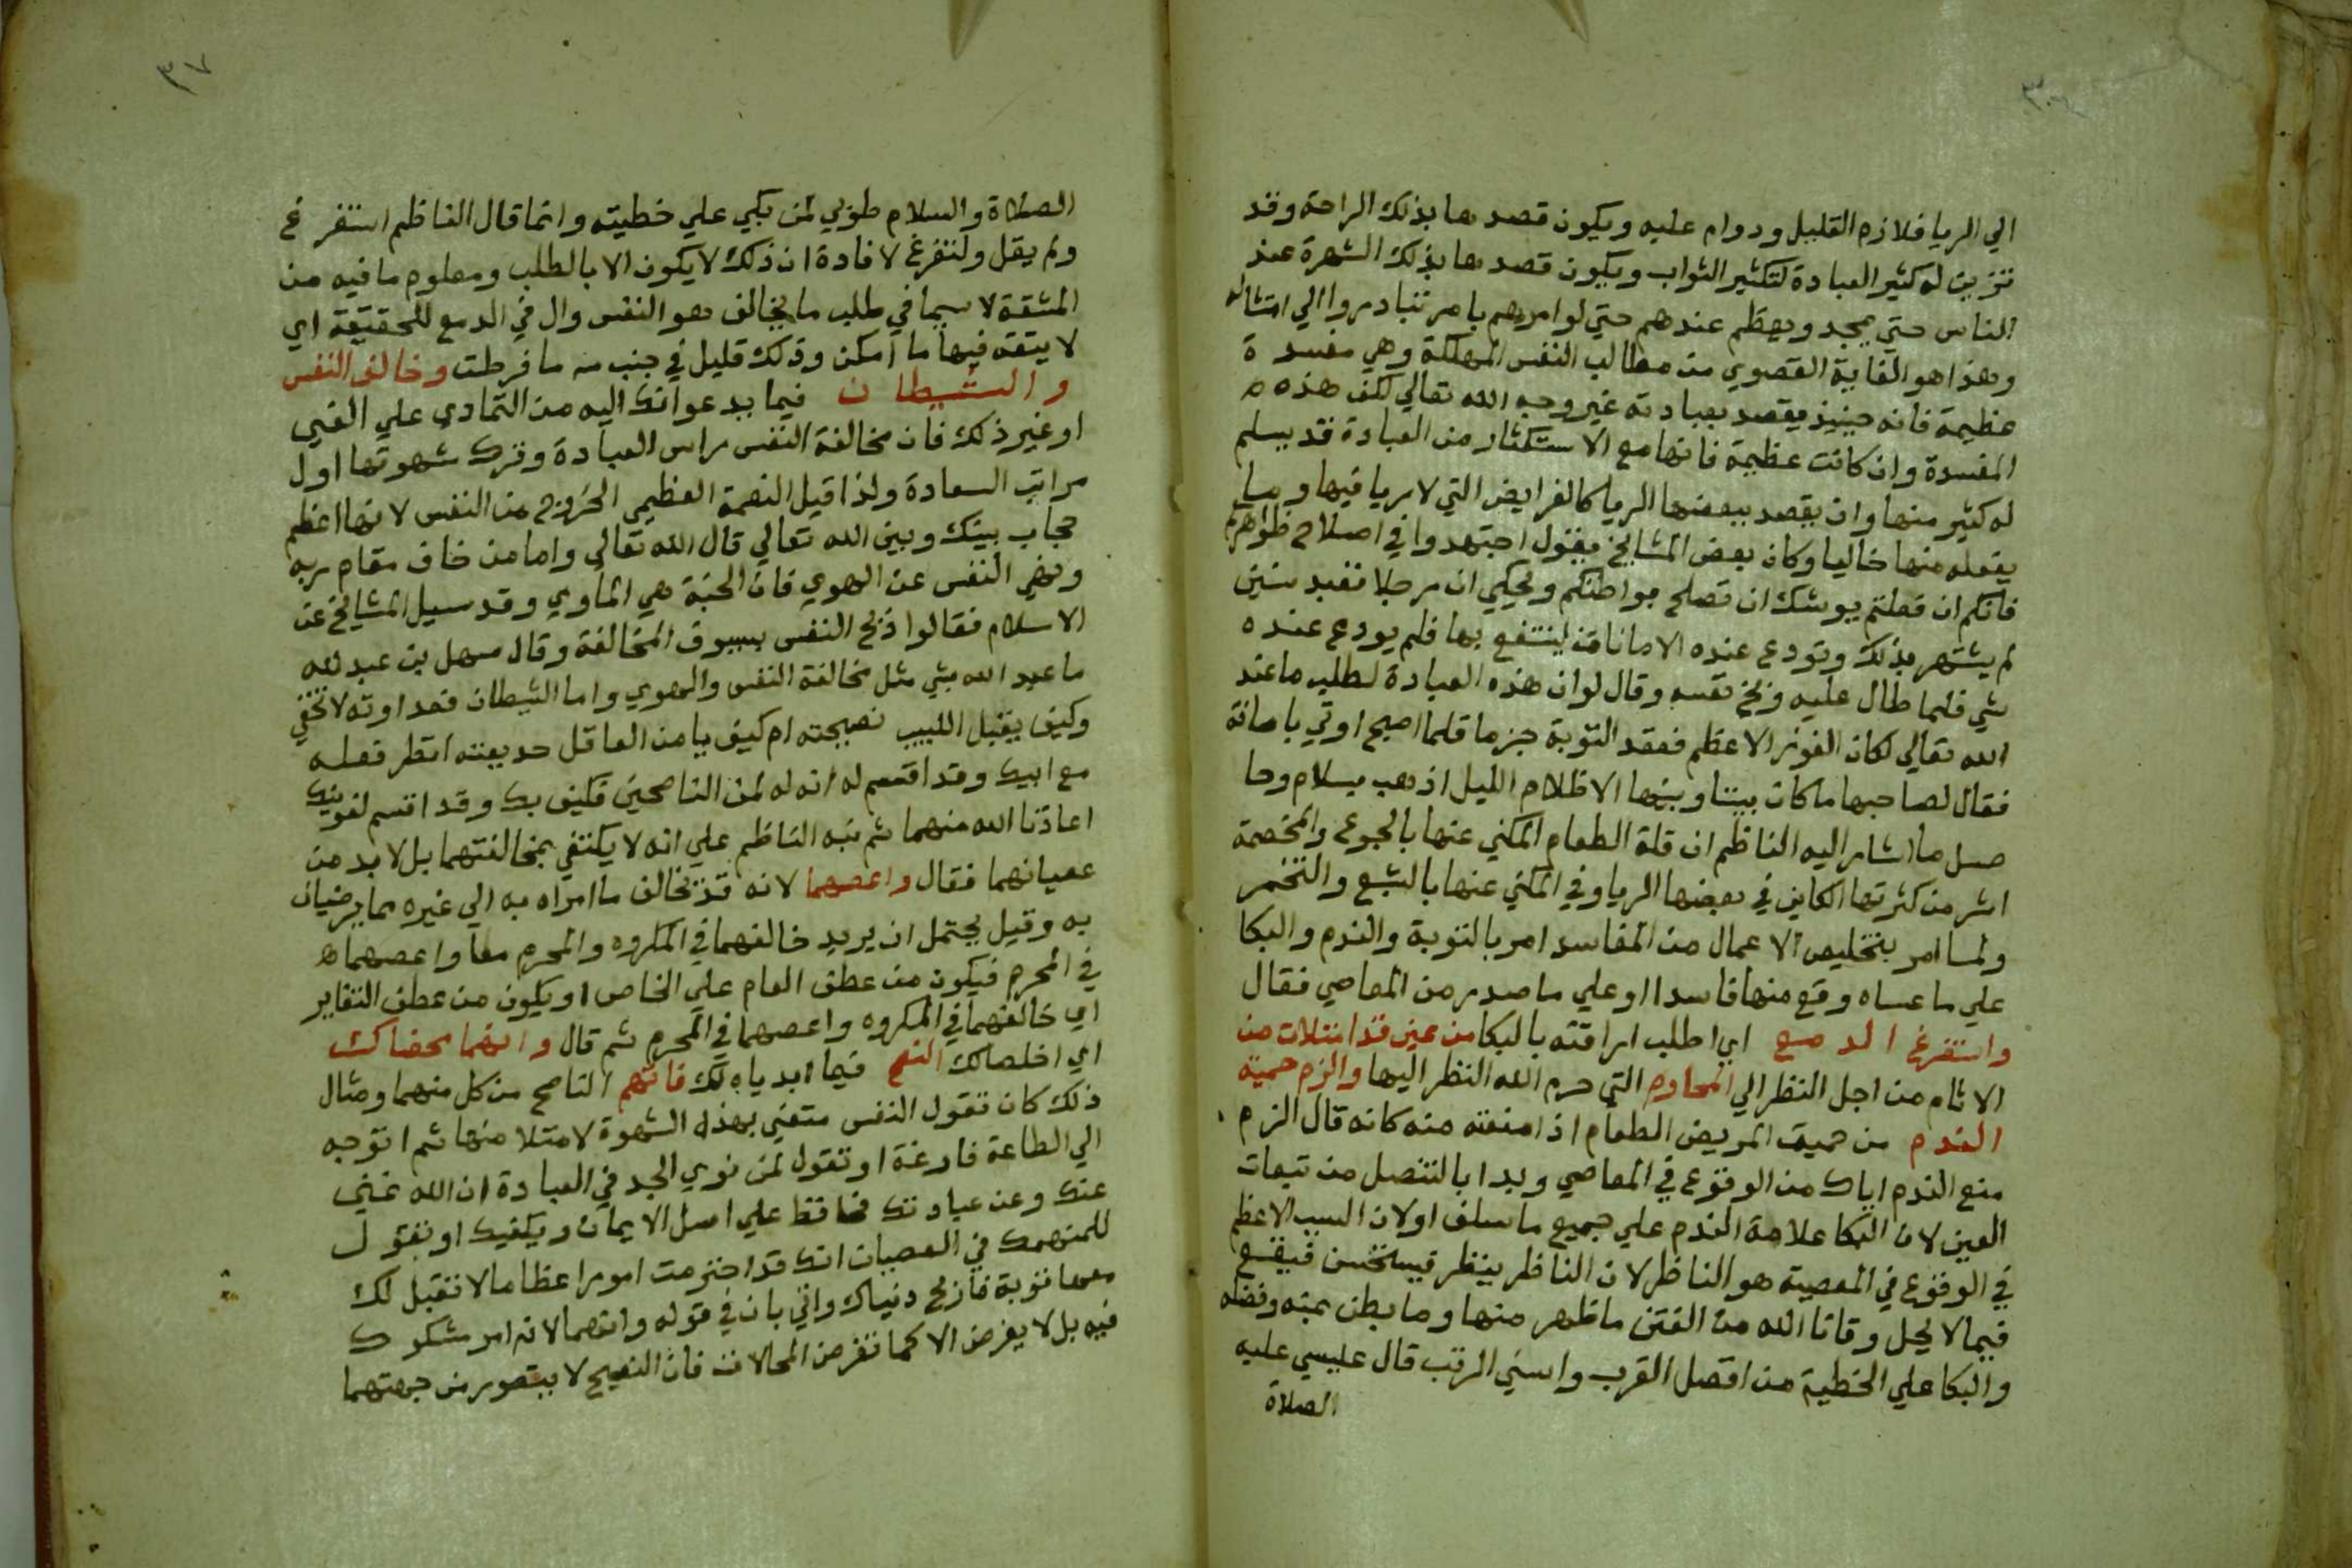 الي الريا فلازم القليل ودوام عليه ويكون قصدها بذلك الراحة وقد
تزين له كثير العبادة لتكثير الثواب ويكون قصدها بذلك الشهرة عند
الناس حتي يمجد ويعظم عندهم حتي لو امرهم بامر تبادروا الي امتثاله
وهذا هو الغاية القصوي من مطالب النفس المهلكة وهي مفسدة
عظيمة فانه حينيذ يقصد بعبادته غير وجه الله تعالي لكن هذه
المفسدة وان كانت عظيمة فانها مع الاستكثار من العبادة قد يسلم
له كثير منها وان يقصد ببعضها الريا كالفرايض التي لا ريا فيها وما
يفعله منها خاليا وكان بعض المشايخ يقول اجتهدوا في اصلاح ظواهركم
فانكم ان فعلتم يوشك ان تصلح بواطنكم ويحكي ان رجلا تعبد سنين
لم يشتهر بذلك وتودع عنده الامانات لينتفع بها فلم يودع عنده
شي فلما طال عليه وبخ نفسه وقال لو ان هذه العبادة لطلب ما عند
الله تعالي لكان الفوز الاعظم فعقد التوبة جزما فلما اصبح اوتي بامانة
فقال لصاحبها ما كان بيننا وبينها الا ظلام الليل اذهب بسلام وحا
صل ما اشار اليه الناظم ان قلة الطعام المكني عنها بالجوع والمخمصة
اشر من كثرتها الكاين في بعضها الريا وفي المكني عنها بالشبع والتخمر
ولما امر بتخليص الاعمال من المفاسد امر بالتوبة والندم والبكا
علي ما عساه وقع منها فاسدا او علي ما صدر من المعاصي فقال
واستفرغ الدمع اي اطلب اراقته بالبكا من عين قد امتلات من
الاثام من اجل النظر الي المحارم التي حرم الله النظر اليها والزم حمية
الندم من حميت المريض الطعام اذا منعته منه كانه قال الزم
منع الندم اياك من الوقوع في المعاصي وبدا بالتنصل من تبعات
العين لان البكا علامة الندم علي جميع ما سلف او لان السبب الاعظم
في الوقوع في المعصية هو الناظر لان الناظر ينظر فيستحسن فيقع
فيما لا يحل وقانا الله من الفتن ما ظهر منها وما بطن بمنه وفضله
والبكا علي الخطية من افضل القرب واسني الرتب قال عيسي عليه
الصلاة
٣٧
الصلاة والسلام طوبي لمن بكي علي خطيته وانما قال الناظم استفرغ
ولم يقل ولتفرغ لافادة ان ذلك لا يكون الا بالطلب ومعلوم ما فيه من
المشقة لا سيما في طلب ما يخالف هو النفس وال في الدمع للحقيقة اي
لا يبقه فيها ما امكن وذلك قليل في جنب ما فرطت وخالف النفس
والشيطان فيما يدعوانك اليه من التمادي علي الغي
او غير ذلك فان مخالفة النفس راس العبادة وترك شهوتها اول
مراتب السعادة ولذا قيل النعمة العظمي الخروج من النفس لانها اعظم
حجاب بينك وبين الله تعالي قال الله تعالي واما من خاف مقام ربه
ونهي النفس عن الهوي فان الجنة هي الماوي وقد سيل المشايخ عن
الاسلام فقالوا ذبح النفس بسيوف المخالفة وقال سهل بن عبد الله
ما عبد الله بشي مثل مخالفة النفس والهوي واما الشيطان فعداوته لا تخفي
وكيف يقبل اللبيب نصيحته ام كيف يامن العاقل خديعته انظر فعله
مع ابيك وقد اقسم له انه له لمن الناصحين فكيف بك وقد اقسم لغوينك
اعاذنا الله منهما ثم نبه الناظم علي انه لا يكتفي بمخالفتهما بل لا بد من
عصيانهما فقال واعصهما لانه قد تخالف ما امراه به الي غيره مما يرضيان
به وقيل يحتمل ان يريد خالفهما في المكروه والمحرم معا واعصهما
في المحرم فيكون من عطف العام علي الخاص او يكون من عطف التغاير
اي خالفهما في المكروه واعصهما في المحرم ثم قال وان هما محضاك
اي اخلصالك النصح فيما ابدياه لك فاتهم الناصح من كل منهما ومثال
ذلك كان تقول النفس متعني بهذه الشهوة لامتلا منها ثم اتوجه
الي الطاعة فارغة او تقول لمن نوي الجد في العبادة ان الله غني
عنك وعن عبادتك فحافظ علي اصل الايمان ويكفيك او تقول
للمنهمك في العصيان انك قد اجترمت امورا عظاما لا تقبل لك
معها توبة فاربح دنياك واتي بان في قوله وان هما لانه امر مشكوك
فيه بل لا يفرض الا كما تفرض المحالات فان النصيح لا يتصور من جهتهما